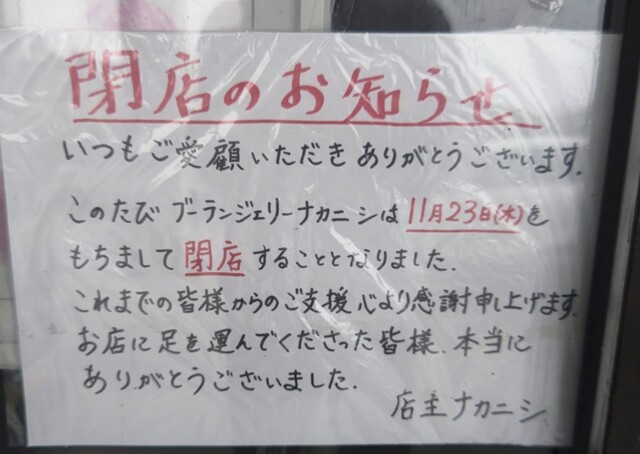 閉店のお知らせ
いつもご愛顧いただきありがとうございます.
このたび ブーランジェリーナカニシは11月23日(木)を
もちまして閉店することとなりました.
これまでの皆様からのご支援心より感謝申し上げます.
お店に足を運んでくださった皆様、本当に
ありがとうございました.
店主ナカニシ